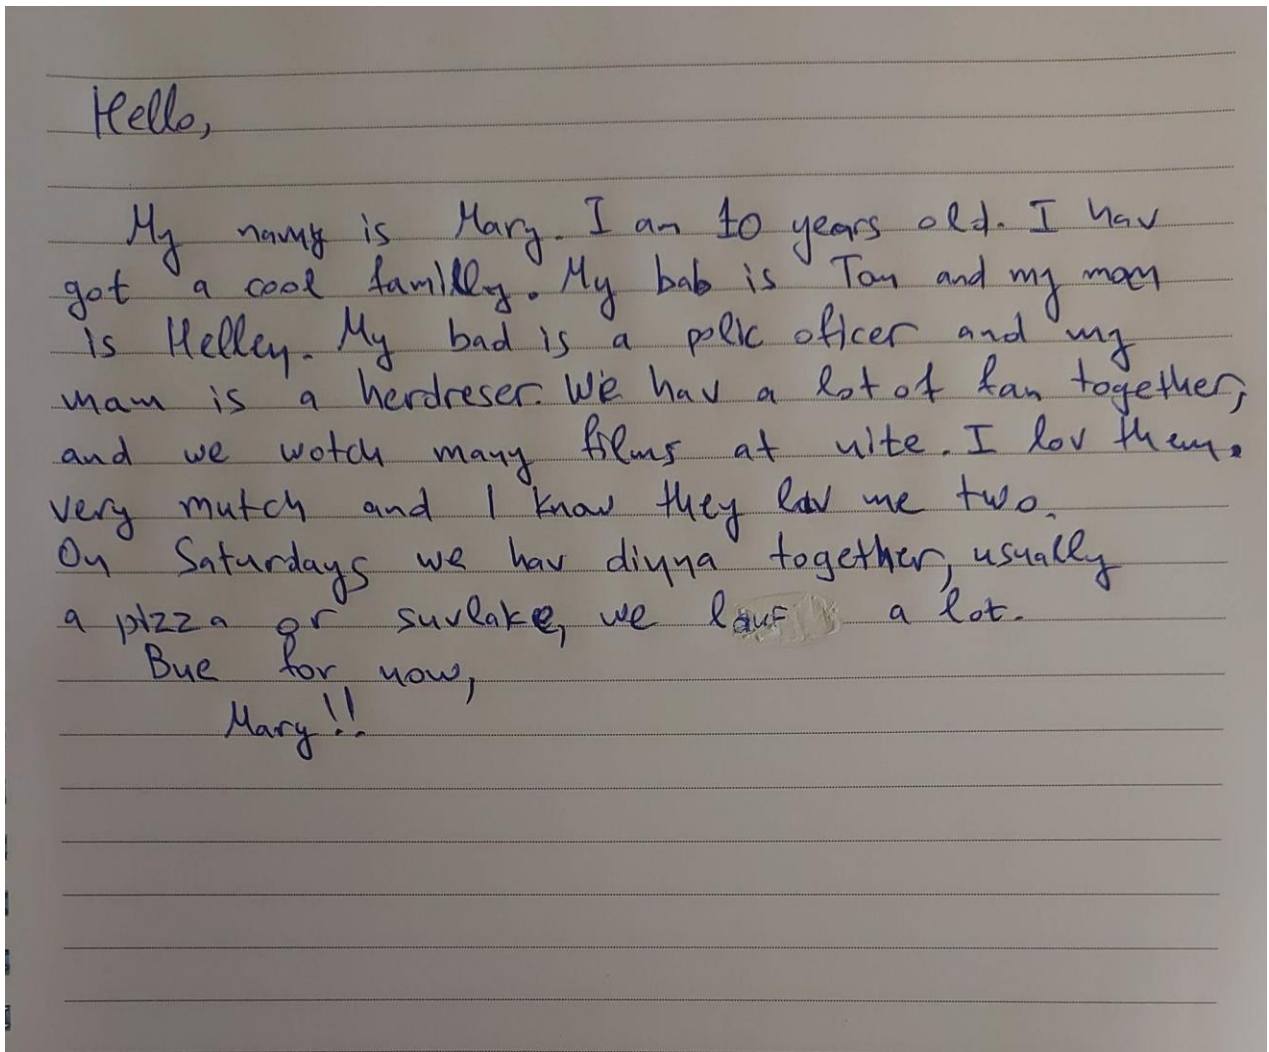 Hello,
My namy is Mary. I am 10 years old. I hav
got a cool familly. My bab is Tom and my mom
is Helley. My bad is a polic oficer and my
mam is a herdreser. We hav a lot of fan together,
and we wotch many films at nite. I lov them.
very mutch and I know they lov me two.
On Saturdays we hav dinna together, usually
a pizza or suvlake, we lauf a lot.
Bue for now,
Mary!!